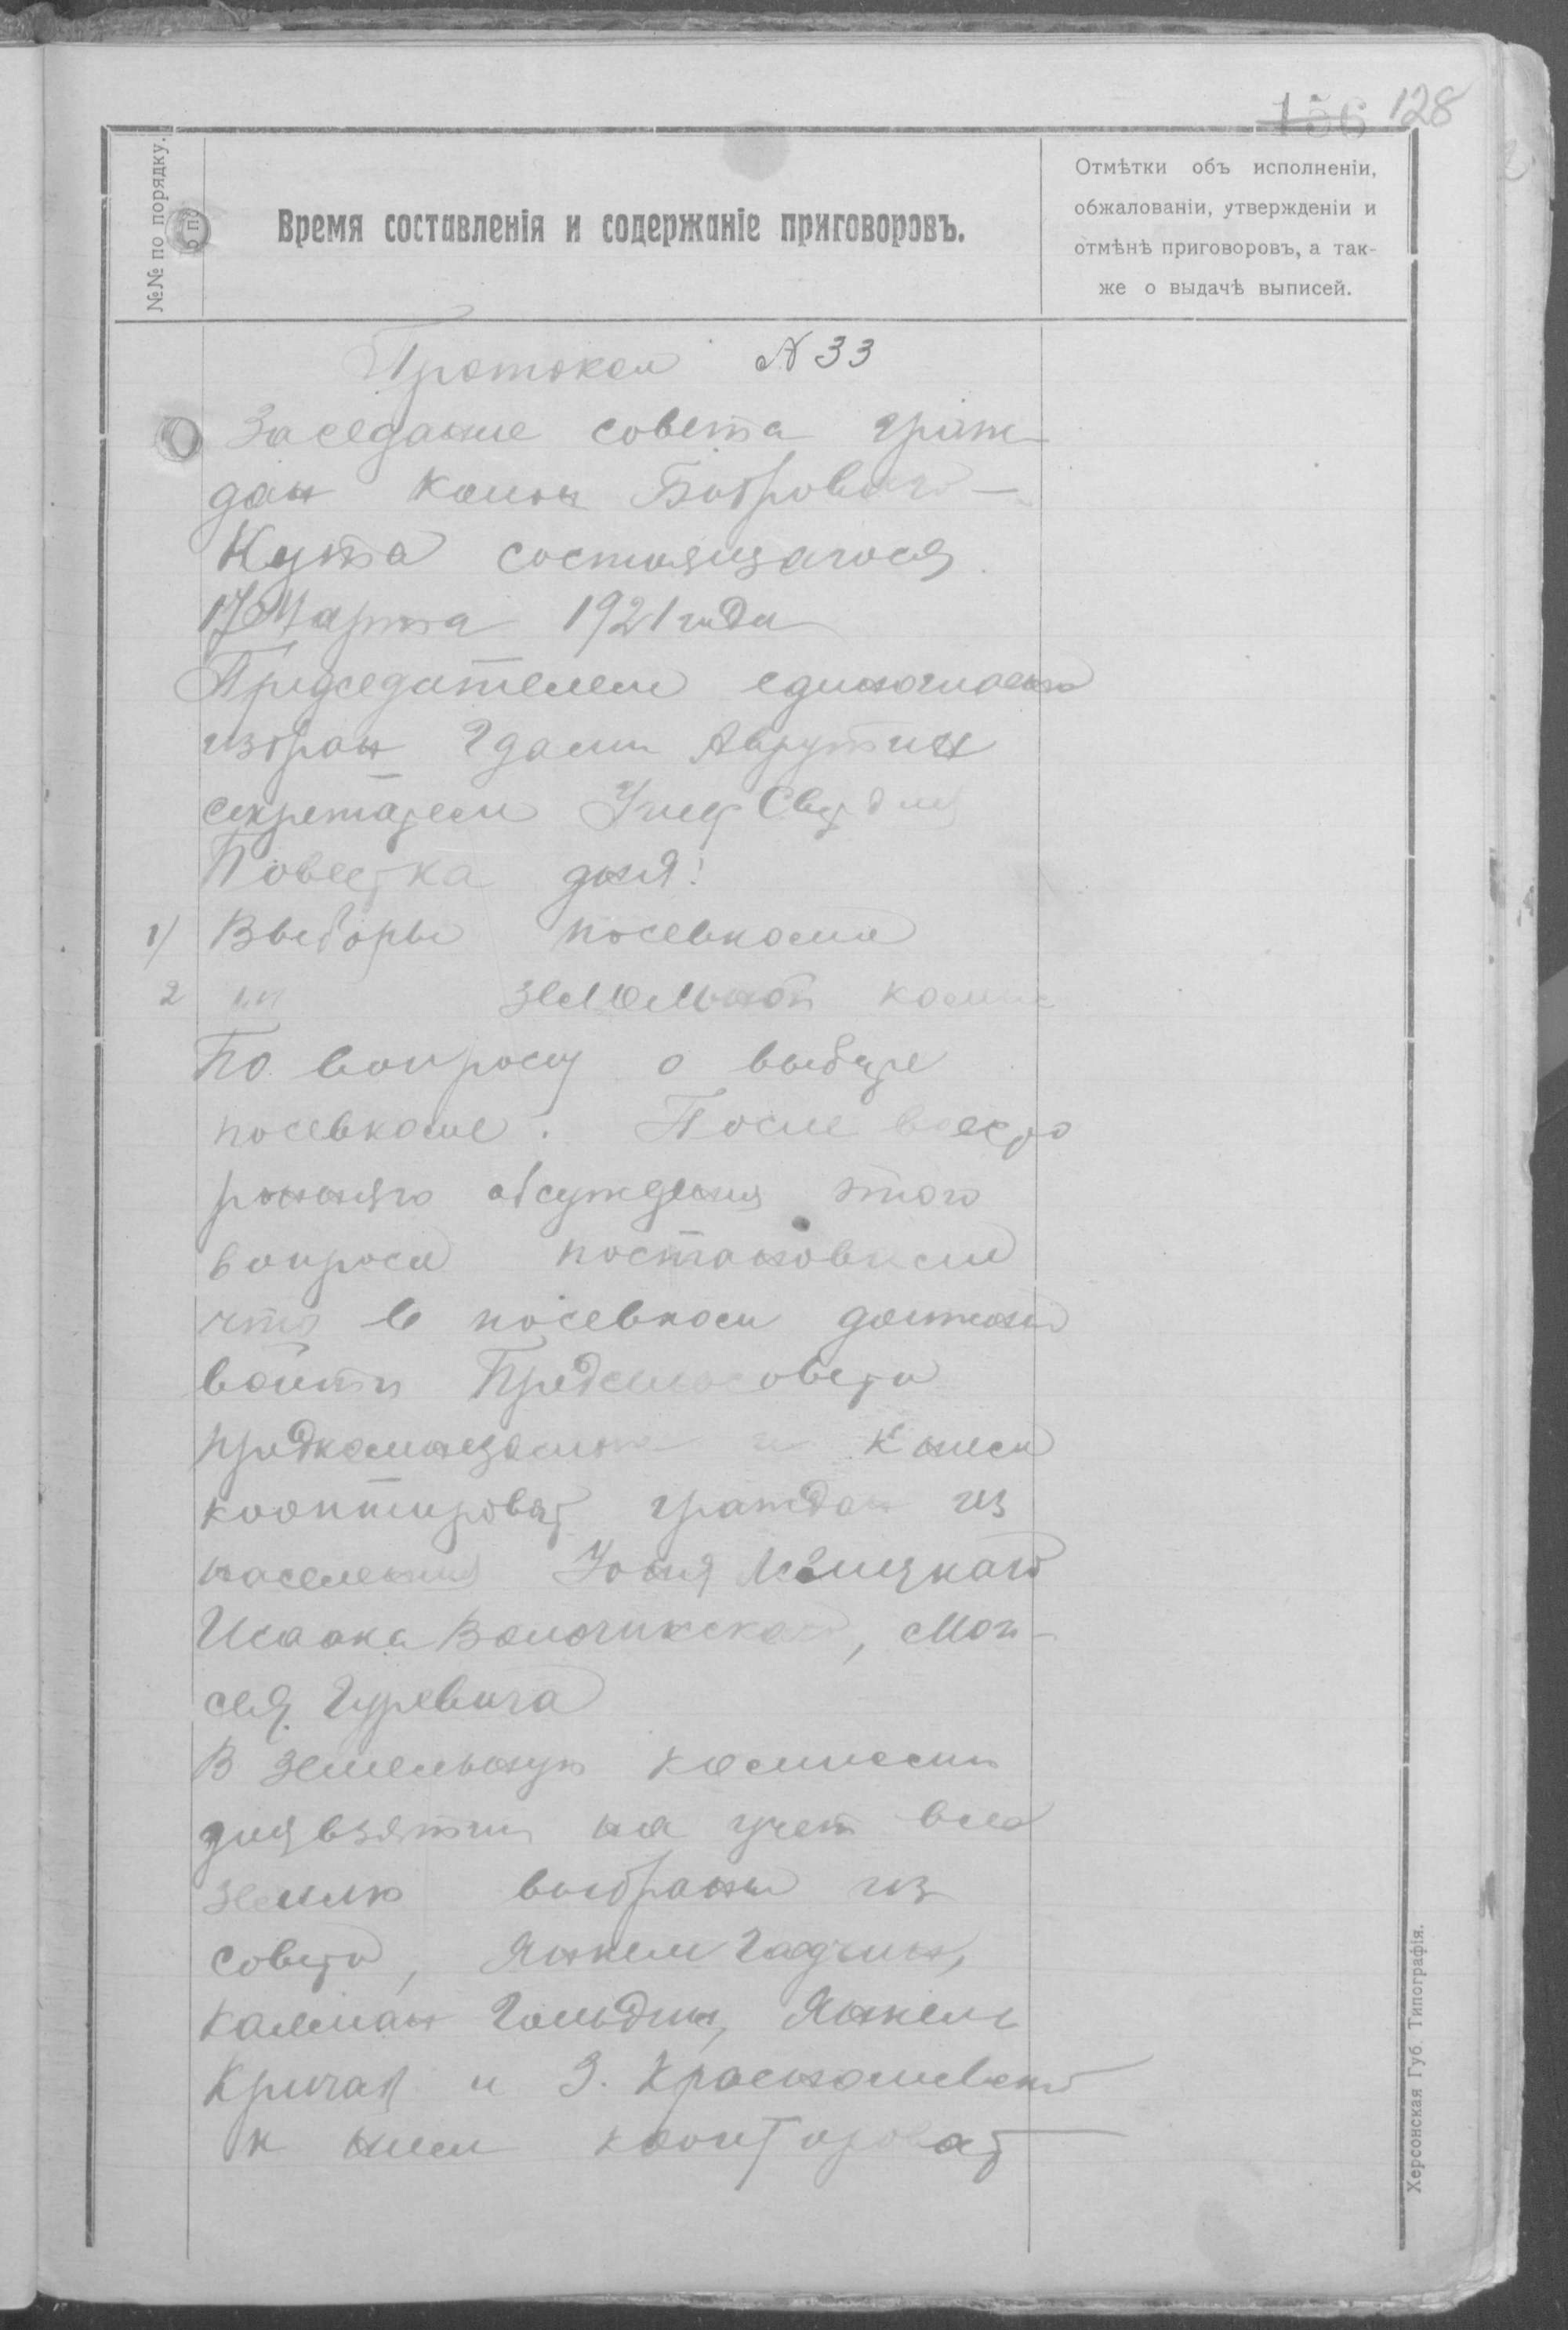 156 128
№№ по порядку.
Время составленія и содержаніе приговоровъ.
Отмѣтки объ исполненіи,
обжалованіи, утвержденіи и
отмѣнѣ приговоровъ, а так-
же о выдачѣ выписей.
Протокол № 33
Заседание совета граж-
дан колон Бобрового-
Кута состоящагося
17 Марта 1921 года
Председателем единогласно
избран Гдали Аврутин
секретарем
Повестка дня:
1) Выборы посевкома
2 " земельной комис
По вопросу о выборе
посевкома. После всесто
роннего обсуждения этого
вопроса постановили
что в посевком должны
войти Предсельсовета
предкомнезама и к ним
кооптироват граждан из
населения
Исаака, Мои-
сея Гуревича
В земельную комиссию
для взятия на учет всю
землю выбраны из
совета, Янкель,
Калман Гольдин, Янкель
Кричал и З.
к ним кооптироват
Херсонская Губ. Типографія.